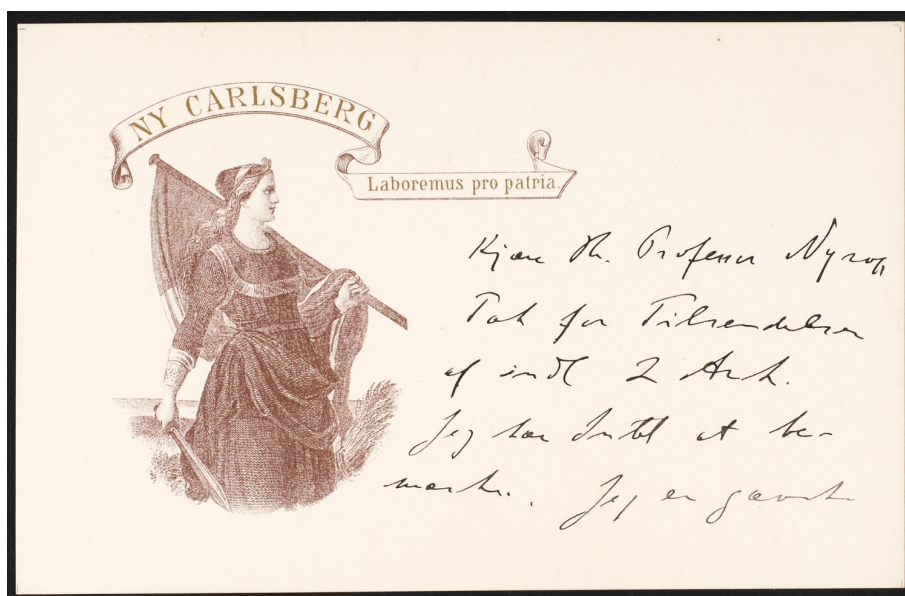 NY CARLSBERG
Laboremus pro patria.
Kjære Hr. Professor Nyrop
Tak for Tilsendelsen
af indl 2 Ark.
Jeg har Intet at be-
mærke. Jeg er ganske